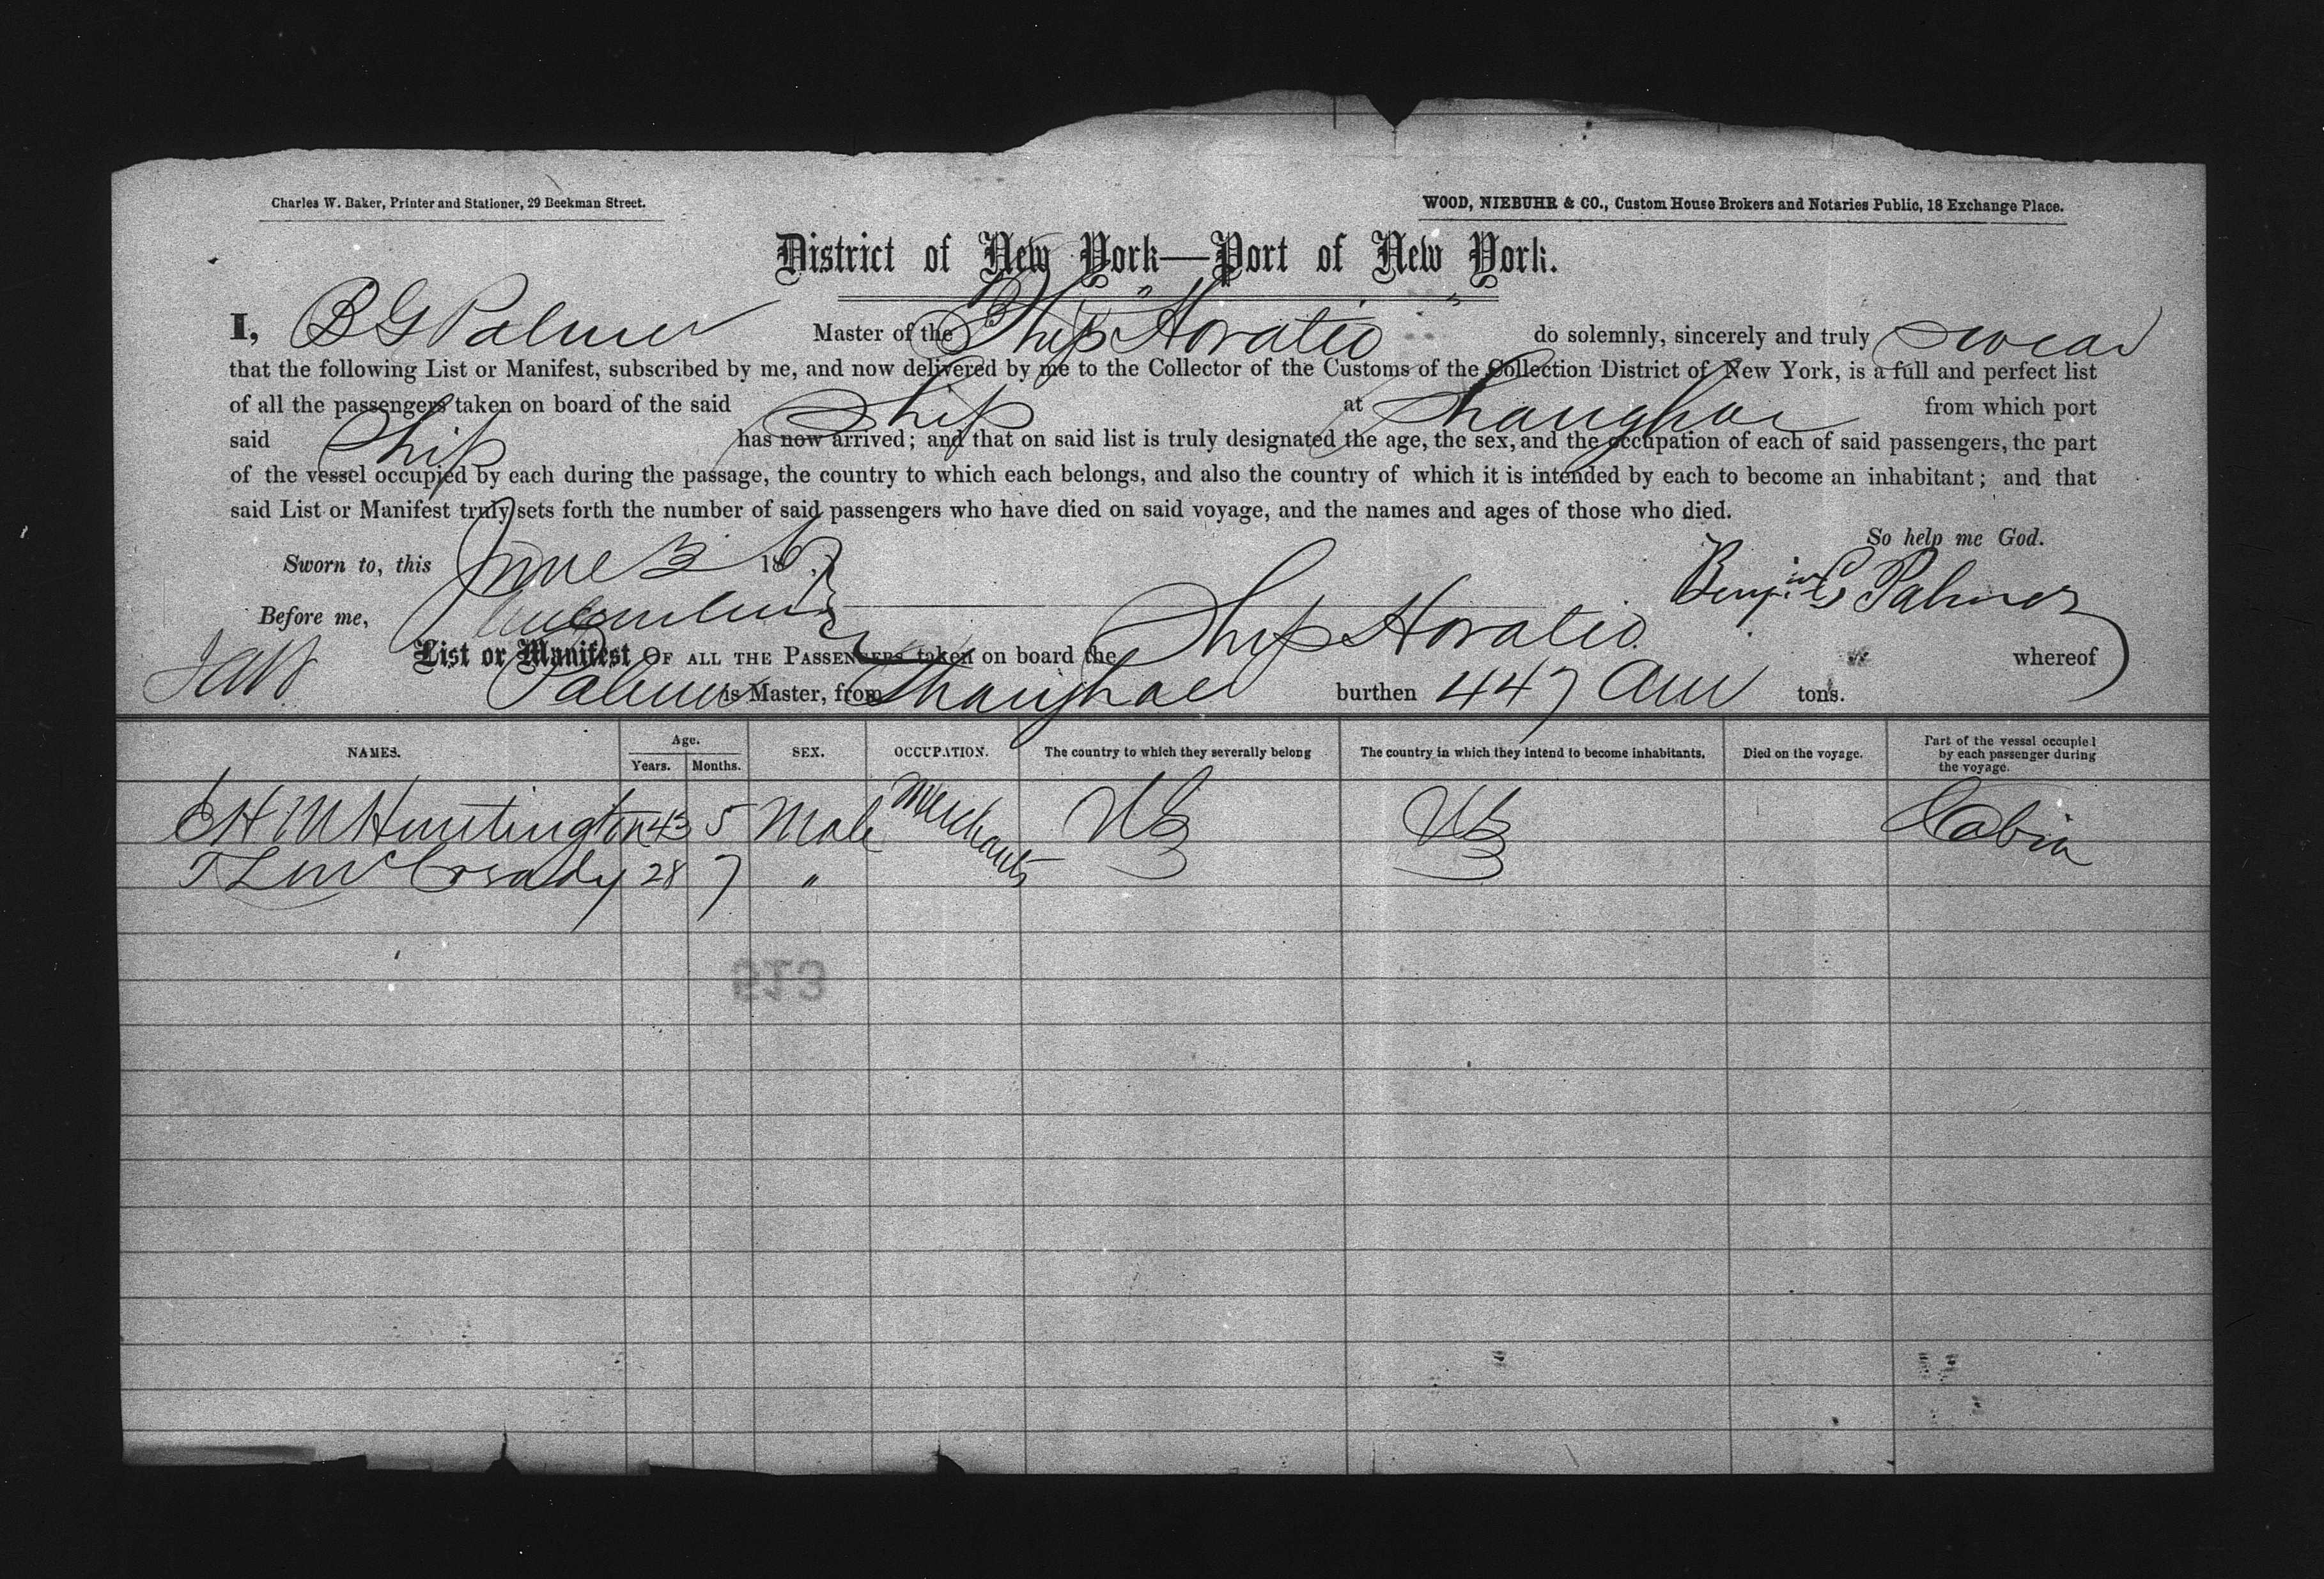 Charles W. Baker, Printer and Stationer, 29 Beekman Street.
WOOD, NIEBUHR & CO., Custom House Brokers and Notaries Public, 18 Exchange Place.
District of New York—Port of New York.
I, B G Palmer Master of the Ship "Horatio" do solemnly, sincerely and truly swear
that the following List or Manifest, subscribed by me, and now delivered by me to the Collector of the Customs of the Collection District of New York, is a full and perfect list
of all the passengers taken on board of the said Ship at Shanghae from which port
said Ship has now arrived; and that on said list is truly designated the age, the sex, and the occupation of each of said passengers, the part
of the vessel occupied by each during the passage, the country to which each belongs, and also the country of which it is intended by each to become an inhabitant; and that
said List or Manifest truly sets forth the number of said passengers who have died on said voyage, and the names and ages of those who died.
So help me God.
Sworn to, this June 3 186
Benjin G Palmer
Before me,
List or Manifest OF ALL THE PASSENGERS taken on board the Ship Horatio whereof
Palmer is Master, from Shanghae burthen 447 Am tons.
NAMES. Age. Years. Months. SEX. OCCUPATION. The country to which they severally belong The country in which they intend to become inhabitants. Died on the voyage. Part of the vessel occupied by each passenger during the voyage.
C H M Huntington 43 5 Male Merchants US US Cabin
T L McCrady 28 7 "
513